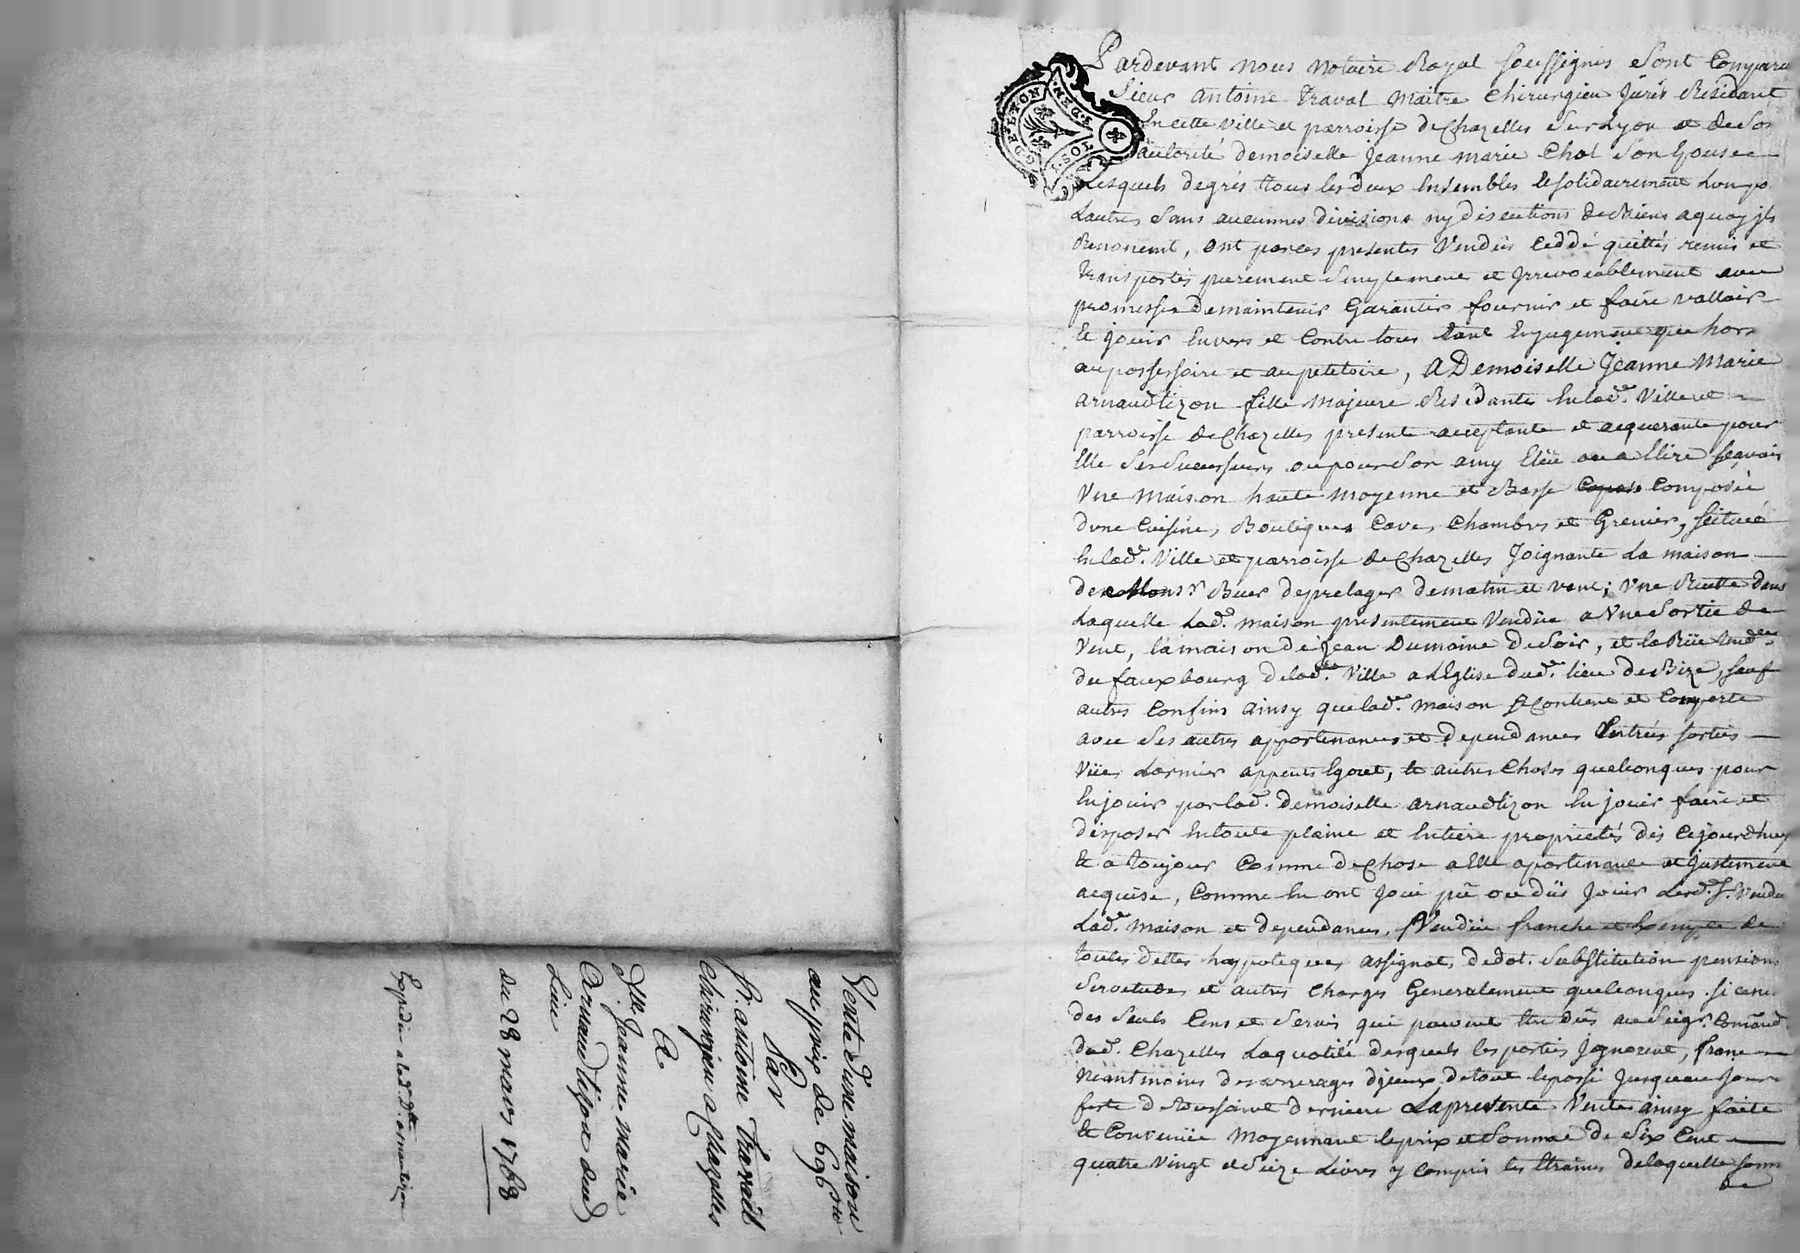 Vente d'une maison
au prix de 696 ₶
Par
Sr. antoine Travail
chirurgien a chazelles
A
Dlle. Jeanne marie
Arnaud tizon dud
Lieu
du 28 mars 1768
Expedié a lad. Dlle arnautizon
Pardevant nous notaire Royal soussignés sont Comparu
Sieur antoine traval maitre chirurgien Jurés Residant
En cette ville et parroisse de Chazelles sur Lyon et de son
autorité demoiselle Jeanne marie Chol son Epouse
Lesquels degrés tous les deux Ensembles et solidairement L'un p
Lautre, sans aucunnes divisions ny discutions de Biens a quoy ils
Renoncent, ont par ces presentes Vendüs ceddé quittés remis et
transportés purement simplement et Irrevocablement avec
promesse de maintenir Garantir fournir et faire valloir
Et jouir Envers et Contre tous tant En jugement que hors
au possessoire et au petitoire, A Demoiselle Jeanne Marie
arnaudtizon fille majeure Residante En lade. Ville et
parroisse de Chazelles presente acceptante et acquerante pour
Elle ses successeurs ou pour son amy Elëü ou a Elire sçavoir
Vne maison haute moyenne et Basse Composée
dvne Cuisine, Boutiques Cave, Chambres et Grenier, scituée
En lade. Ville et parroisse de Chazelles Joignante La maison
de Monsr Buer deprelager de matin et vent; Vne Ruette dans
Laquelle Lade. maison presentement Vendüe a Vne sortie de
Vent, la maison de Jean Dumoine de soir, et la Rüe tende.
du fauxbourg de lade. Ville a L'Eglise dud. lieu de Bize, sauf
autres Confins ainsy que lade. maison se Contient et Comporte
avec ses autres appartenances et dependances Entrées sorties
Vües Larmier appents Egout, et autres Choses quelconques pour
En jouir par lade. demoiselle arnaudtizon En jouir faire et
disposer En toute plaine et Entiere proprietés dès Cejourdhuy
Et a toujour Comme de Chose a Elle apartenante et justement
acquise, Comme En ont Joui pü ou dûs Jouir Lesd. Srs Vendrs
Lade. maison et dependances, Vendüe franche et Exempte de
toutes dettes hyppoteques assignat, dedot. Substitution pensions
Servitudes et autres Charges Generalement quelconques. si ce n'est
des seuls Cens et Servis qui peuvent Etre dûs au Seigr. Comãnd.
dud. Chazelles La quotité desquels les parties Ignorent, franc
neantmoins des arrerages diceux de tout le passé Jusqueau jour
feste de toussaint derniere La presente Vente ainsy faite
Et Convenüe Moyennant le prix et somme de Six Cent
quatre Vingt et seize Livres y Compris les Etraines de laquelle somme
de